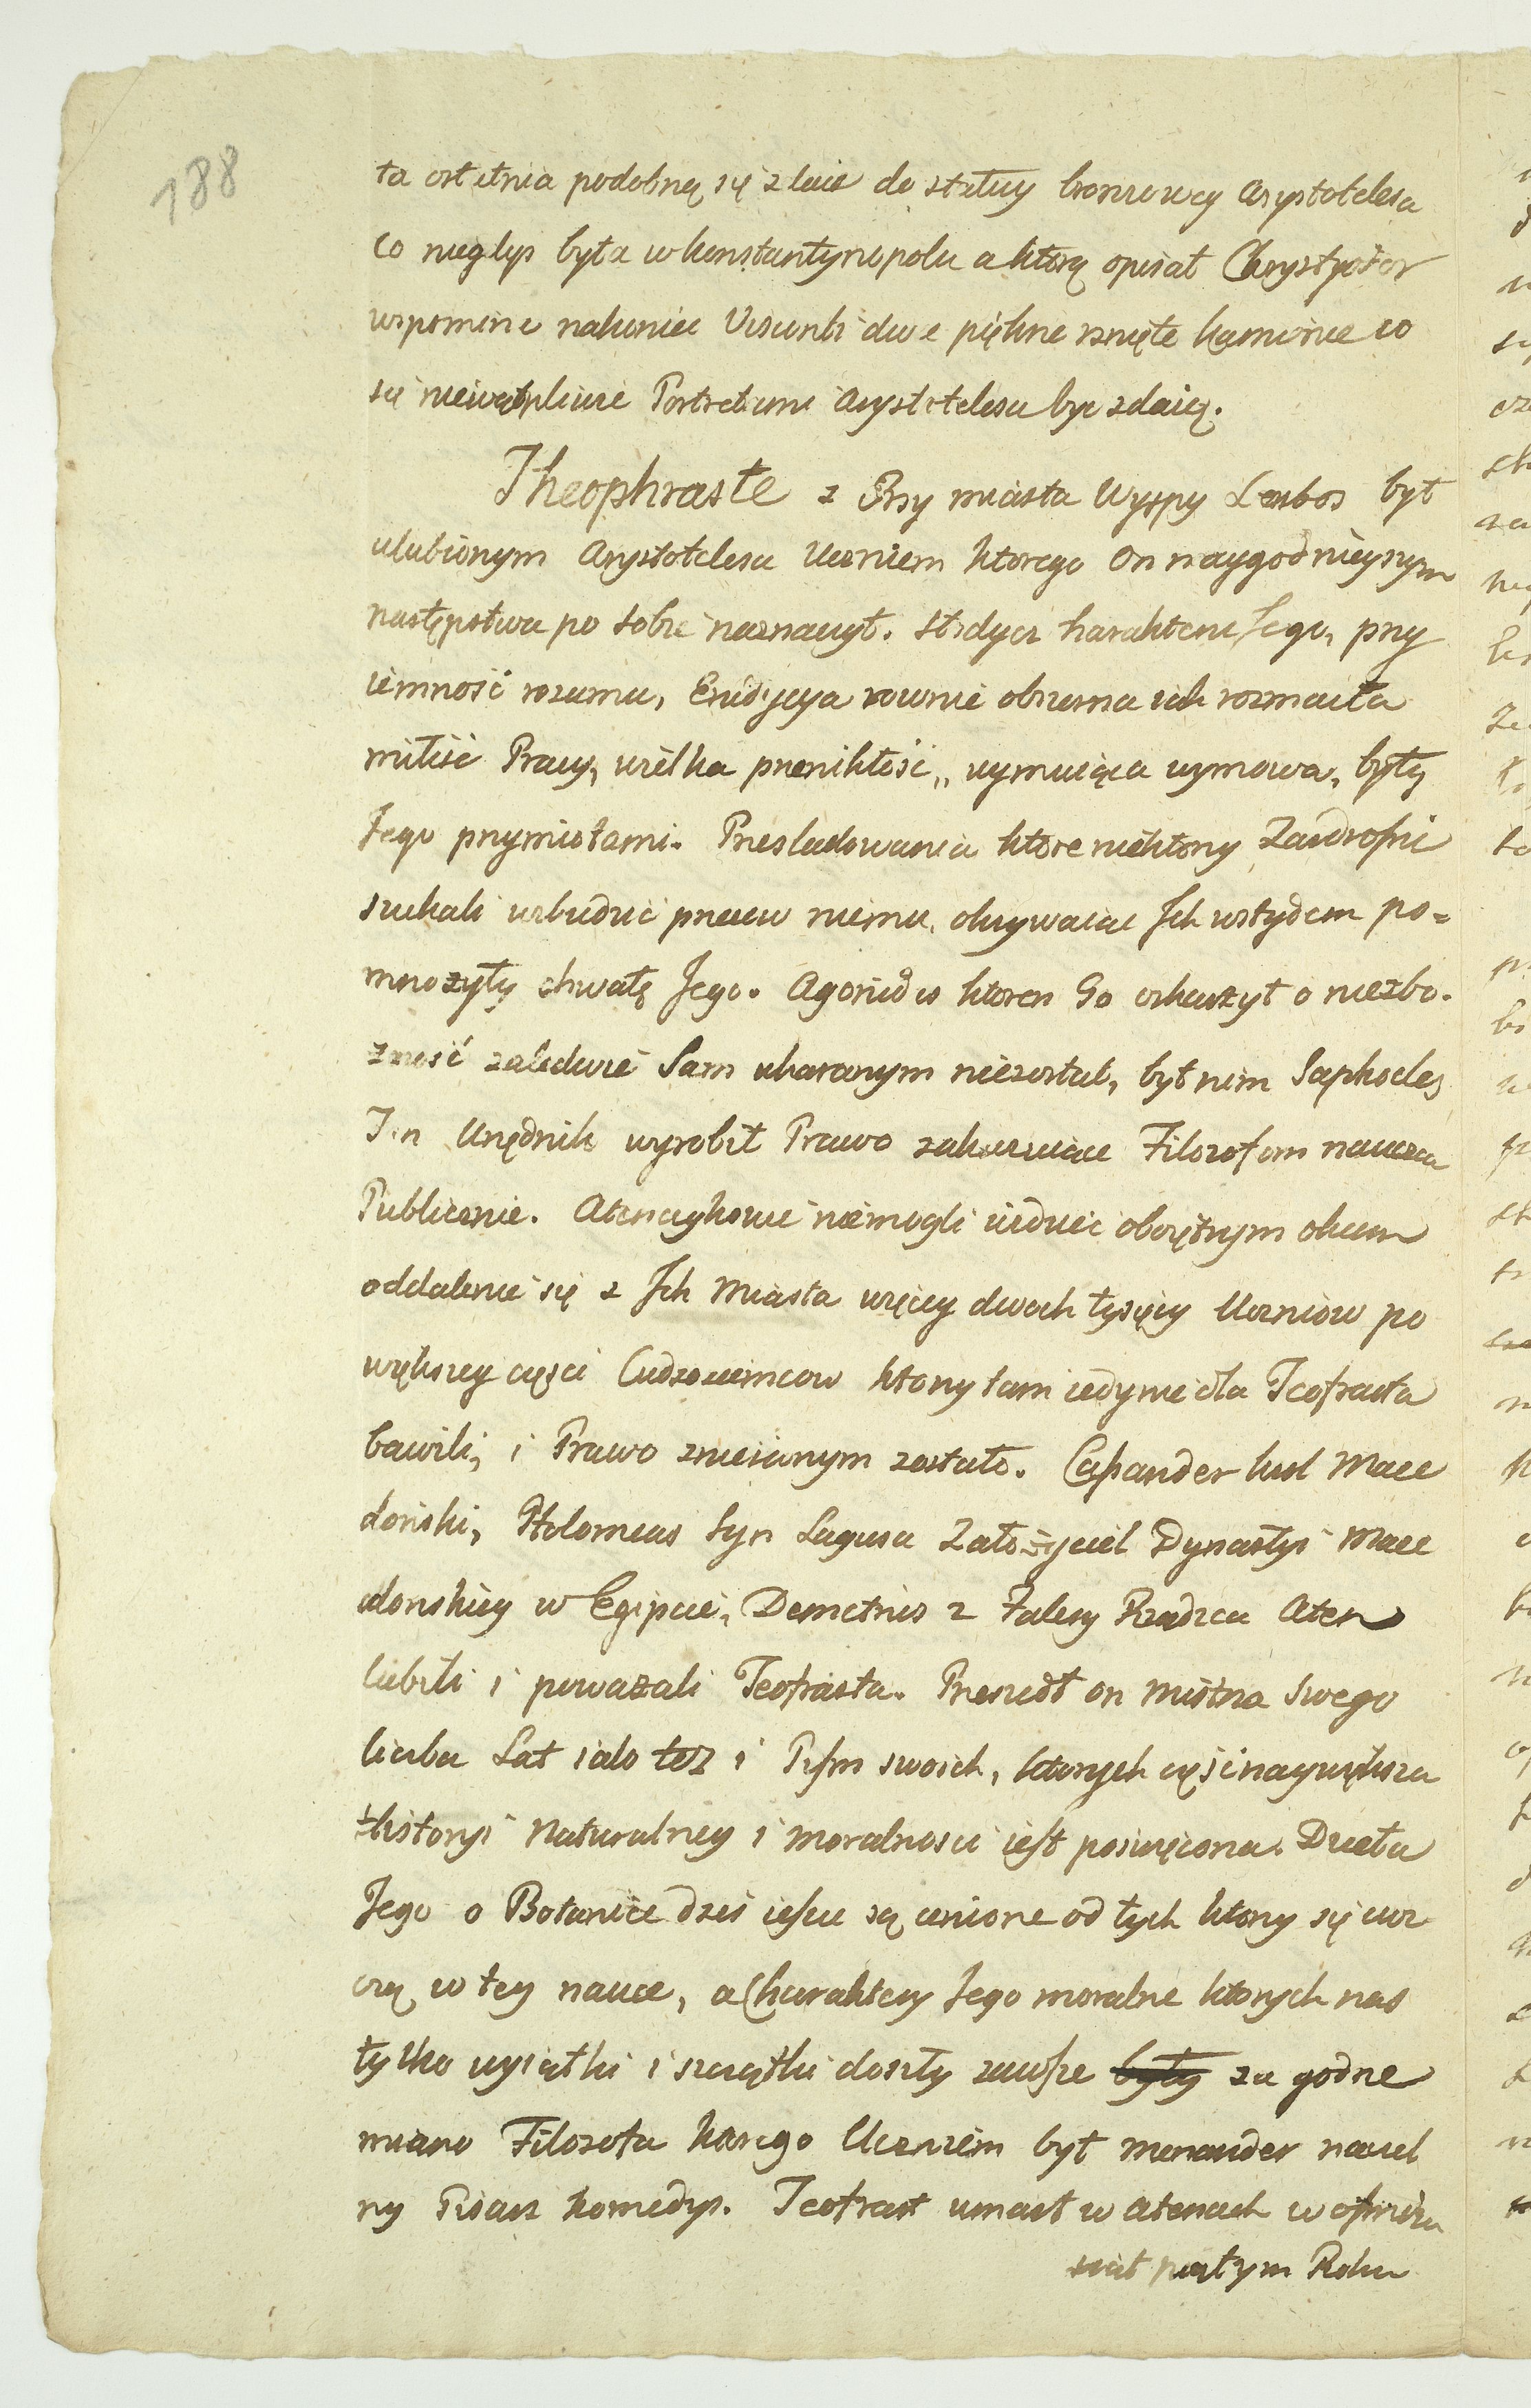 188
ta ostatnia podobną się zdaie do statuy bronzowey Arystotelesa
co niegdys była w konstantynopolu a ktorą opisał Chrystodor
wspomina nakoniec Visconti dwa piękne rznięte kamienie co
są niewątpliwie Portretami Arystotelesa byc zdaią.
Theophraste z Erezy miasta Wyspy Lesbos był
ulubionym Arystotelesa Uczniem ktorego On naygodnieyszym
następstwa po sobie naznaczył. Słodycz harakteru Jego, przy
iemność rozumu, Erudycya rownie obszerna iak rozmaita
miłość Pracy, wielka przenikłość, uymuiąca wymowa, były
Jego przymiotami. Przesladowania ktore niektorzy Zazdrośni
szukali wzbudzić przeciw niemu, okrywaiac Jch wstydem po=
mnożyły chwałę Jego. Agonides ktoren Go oskarżył o niezbo.
żność zaledwie Sam ukaranym niezostał, był nim Sophocles
Ten Urzędnik wyrobił Prawo zakazuiące Filozofom naucza
Publicznie. Atenczykowie niemogli widzieć oboiętnym okiem
oddalenie się z Jch Miasta więcey dwoch tysięcy Uczniow po
większey części Cudzoziemcow ktorzy tam iedynie dla Teofrasta
bawili, i Prawo zniesionym zostało. Cassander krol Mace
doński, Ptolomeus Syn Lagusa Założyciel Dynastyi Mace
donskiey w Egipcie, Demetrius z Falery Rządzca Aten
lubili i poważali Teofrasta. Przeszedł on Mistrza Swego
liczba Lat iako też i Pism swoich, ktorych część naywiększa
Historyi Naturalney i moralnosci iest poswięcona. Dzieła
Jego o Botanice dziś ieszcze są cenione od tych ktorzy się ucz
czą w tey nauce, a Charaktery Jego moralne ktorych nas
tylko wyiątki i szczątki doszły zawsze były za godne
miano Filozofa ktorego Uczniem był Menander naczel
ny Pisarz komedyi. Teofrast umarł w Atenach w osmdzie
siąt piątym Roku